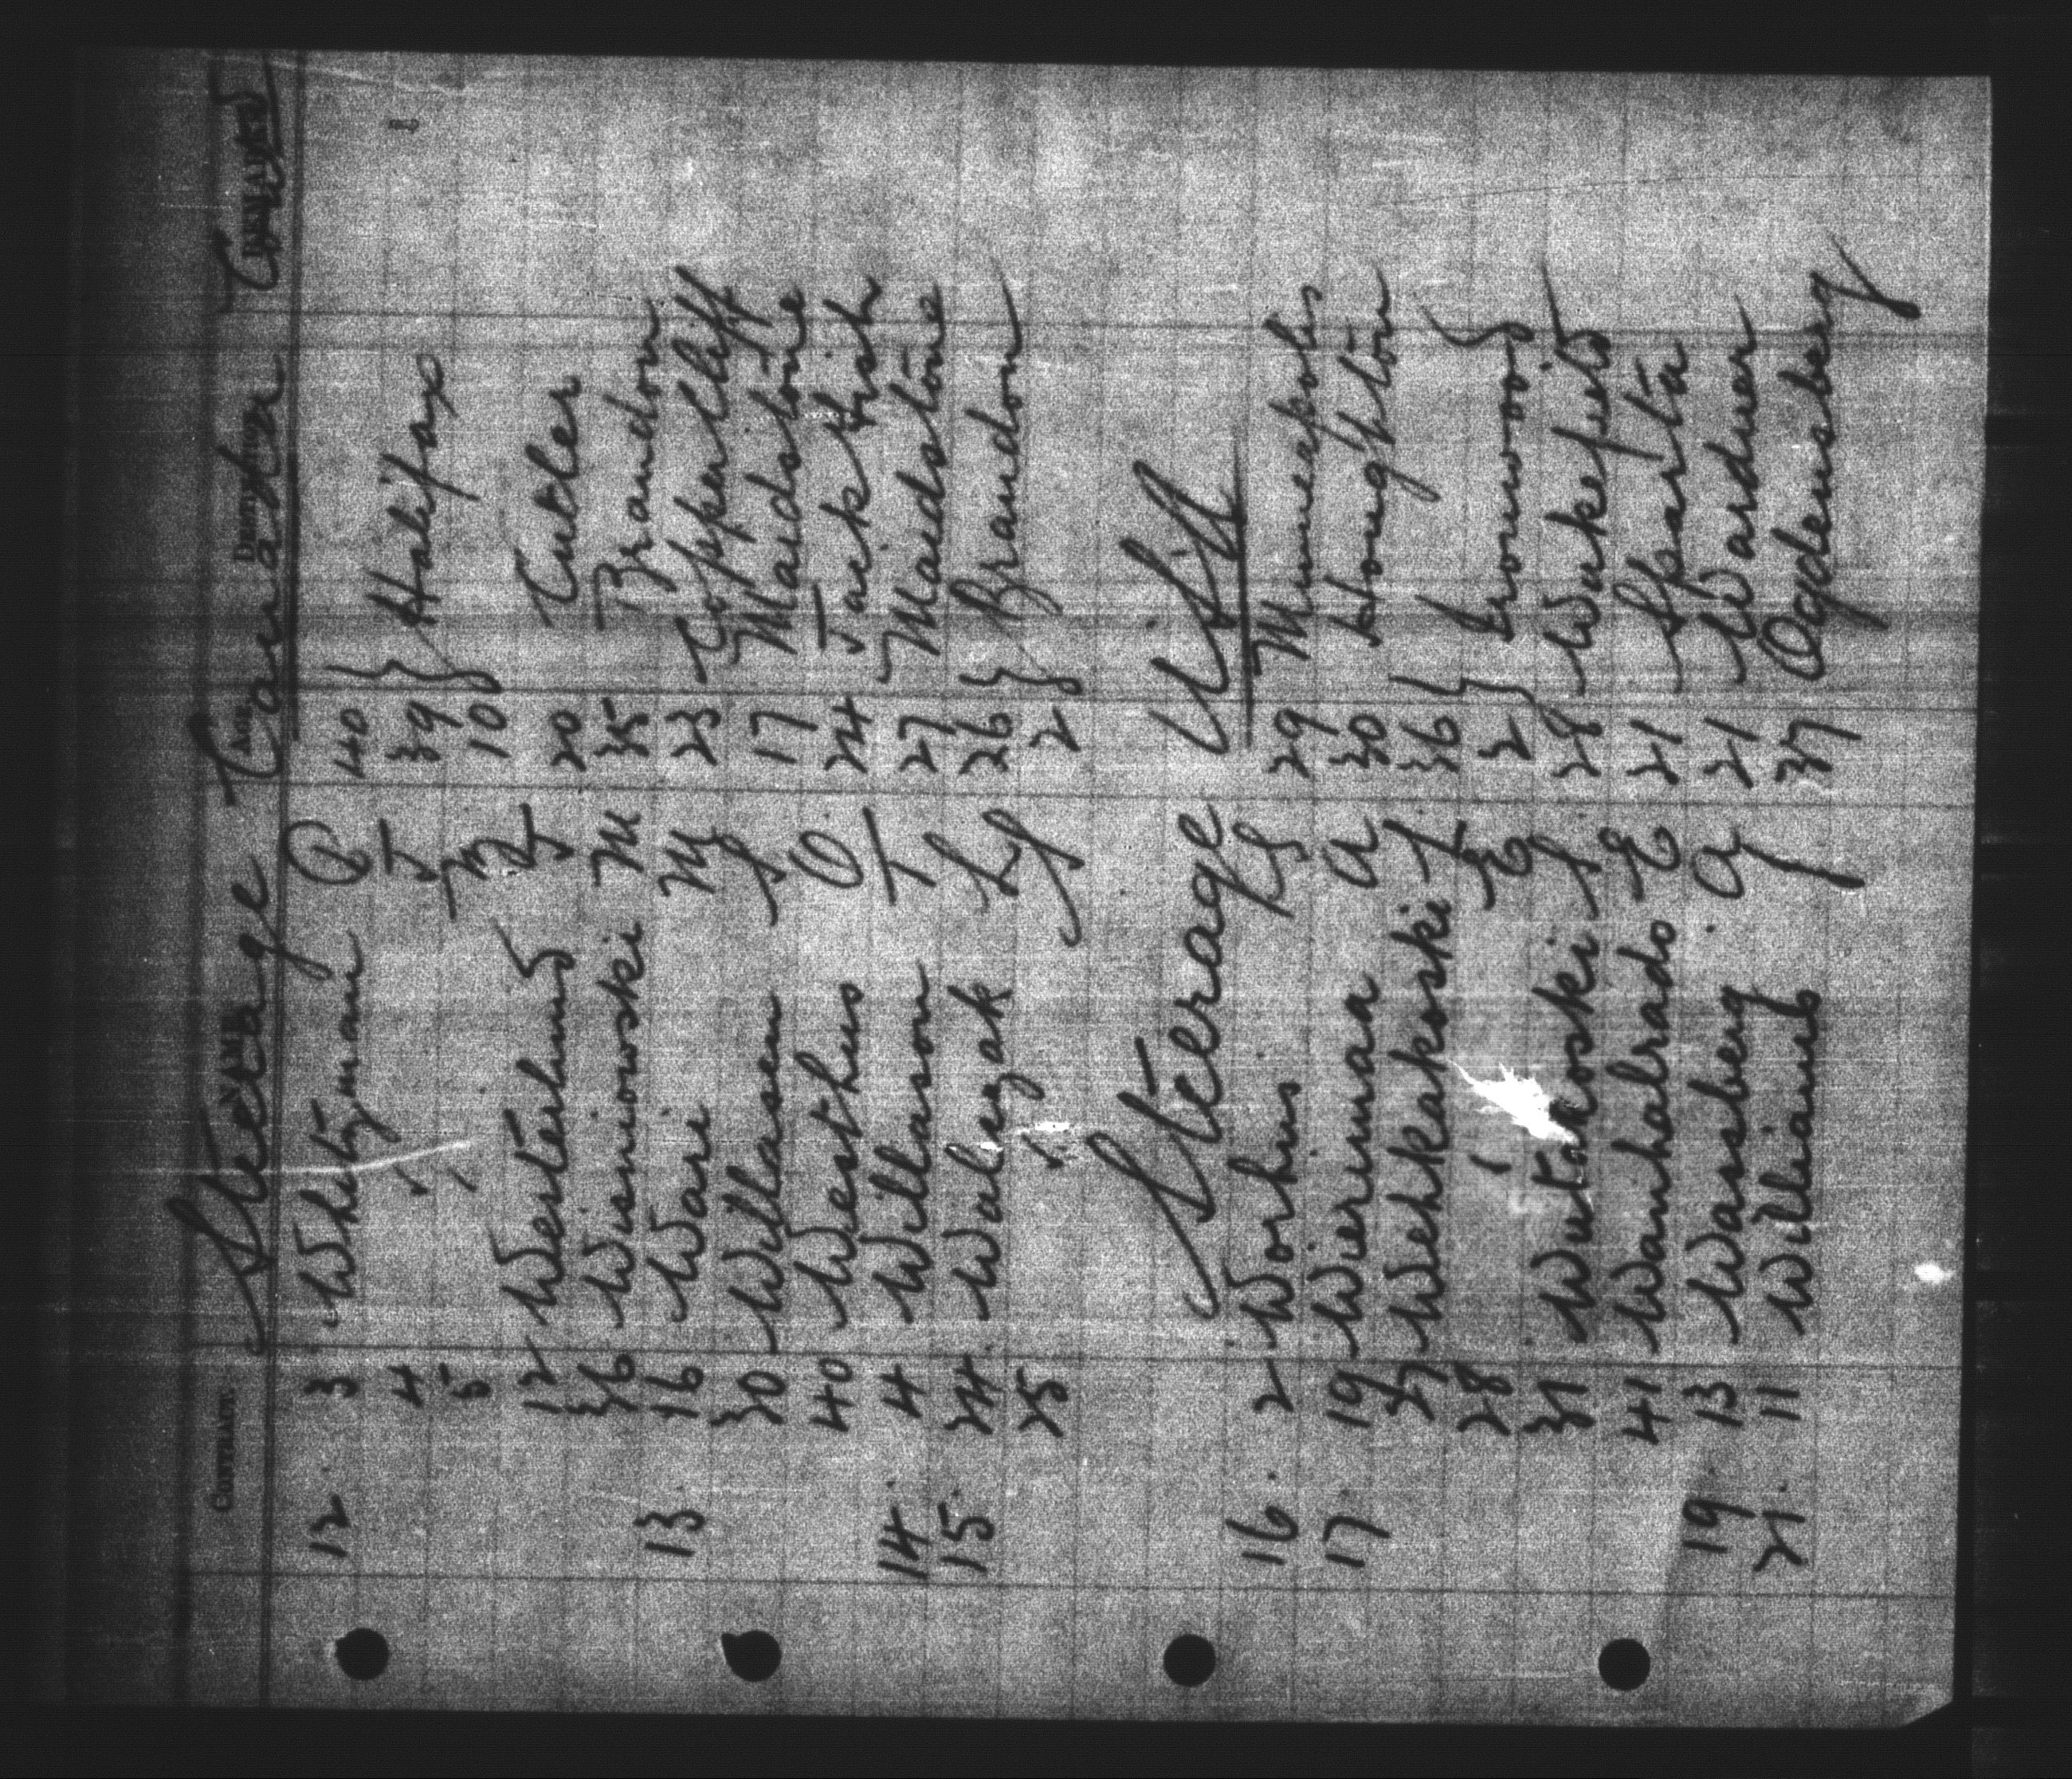 CONTRACT. NAME AGE DESTINATION REMARKS
Steerage Canada Cunard
12. 3. Whityman P 40
4 " J 39 } Halifax
5 " M 10
12 Westerlund J 20 Cutler
36 Wisniowski M 35 Brandon
13 16 Wari M 23 Coppercliff
30 Willasen S 17 Maidstone
40 Westhus O 24 Jack Fish
14. 4 Willason T 27 Maidstone
15. 24. Walczak L 26 } Brandon
25 " S 2
Steerage USA
16. 2. Worhus K S 29 Minneapolis
17. 19 Wierimaa A 30 Houghton
27 Wehkakoski F 36 } Ironwood
28 " E 2
31 Wutakoski S 28 Wakefield
41 Wamhalrado E 21 Sparta
19 13 Wassberg A 21 Wardner
21. 11 Williams J 37 Ogdensberg